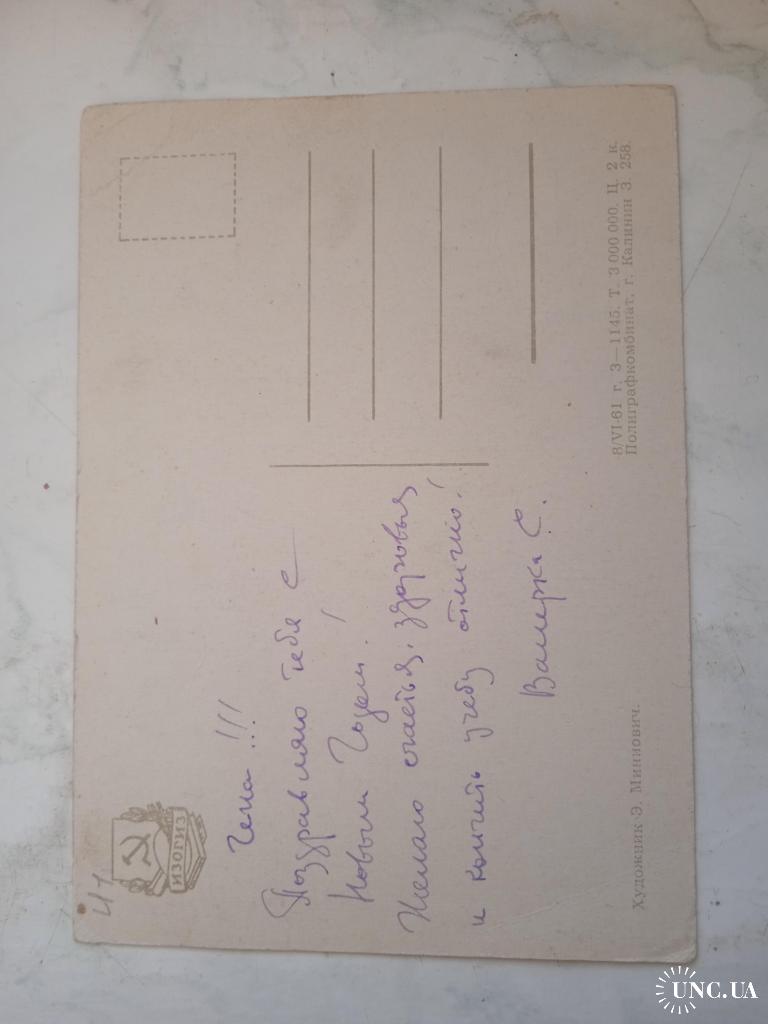 41
ИЗОГИЗ
Гена!!!
Поздравляю тебя с
Новым Годом!
Желаю счастья, здоровья
и кончить учебу отлично!
Валерка С.
Художник Э. Миниович.
8/VI-61 г. З—1145. Т. 3 000 000. Ц. 2 к.
Полиграфкомбинат, г. Калинин З. 258.
UNC.UA